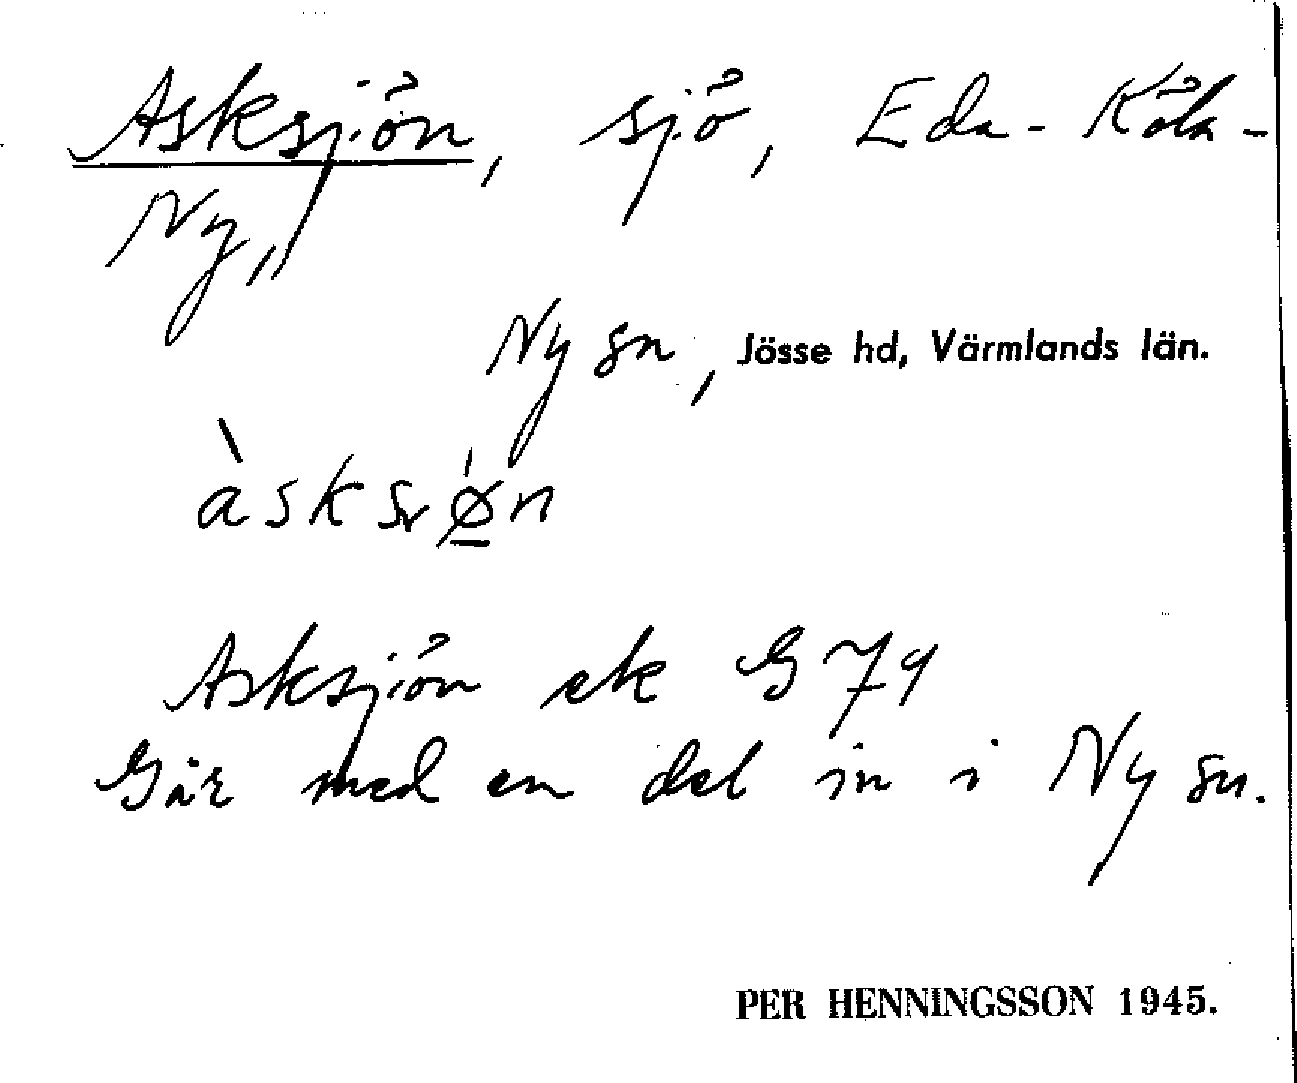 Asksjön, sjö, Eda - Köla -
Ny,
Ny sn, Jösse hd, Värmlands län.
àsksǿ̲n
Asksjön ek G 79
Går med en del in i Ny sn.
PER HENNINGSSON 1945.